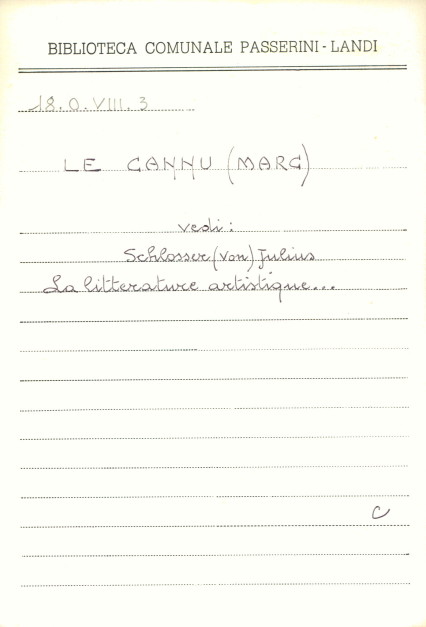 BIBLIOTECA COMUNALE PASSERINI-LANDI
18.O.VIII.3
LE CANNU (MARC)
vedi:
Schlosser (von) Julius
La litterature artistique...
C